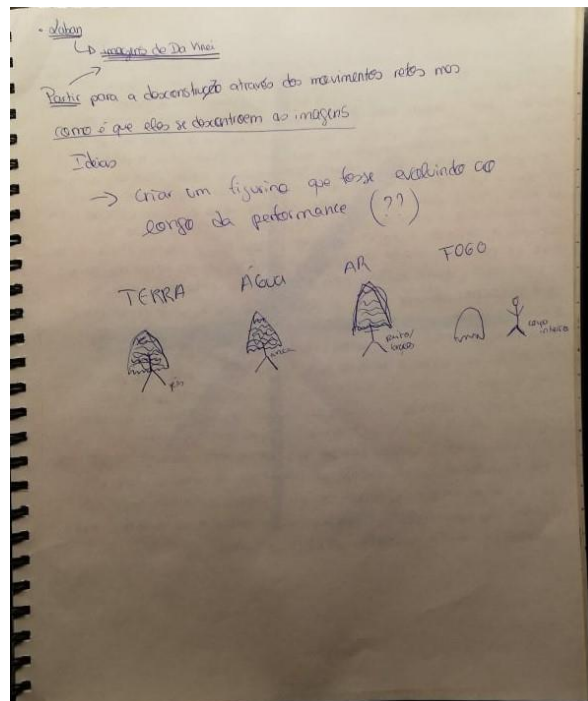 • Laban
↳ imagens de Da Vinci
Partir para a desconstrução através dos movimentos retos mas
como é que eles se descontroem as imagens
Ideias
→ criar um figurino que fosse evoluindo ao
longo da performance (??)
TERRA ÁGUA AR FOGO
pés anca peito/ corpo
braços inteiro